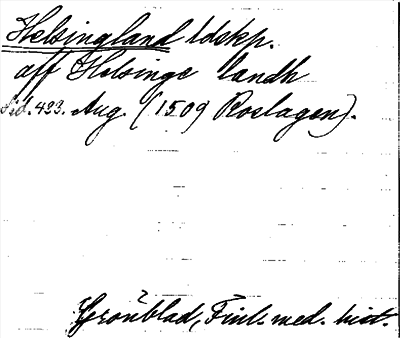 Helsingland ldskp.
aff Helsinge landh
Sid. 423. Aug. (1509 Roslagen).
Grönblad, Finl. med. hist.